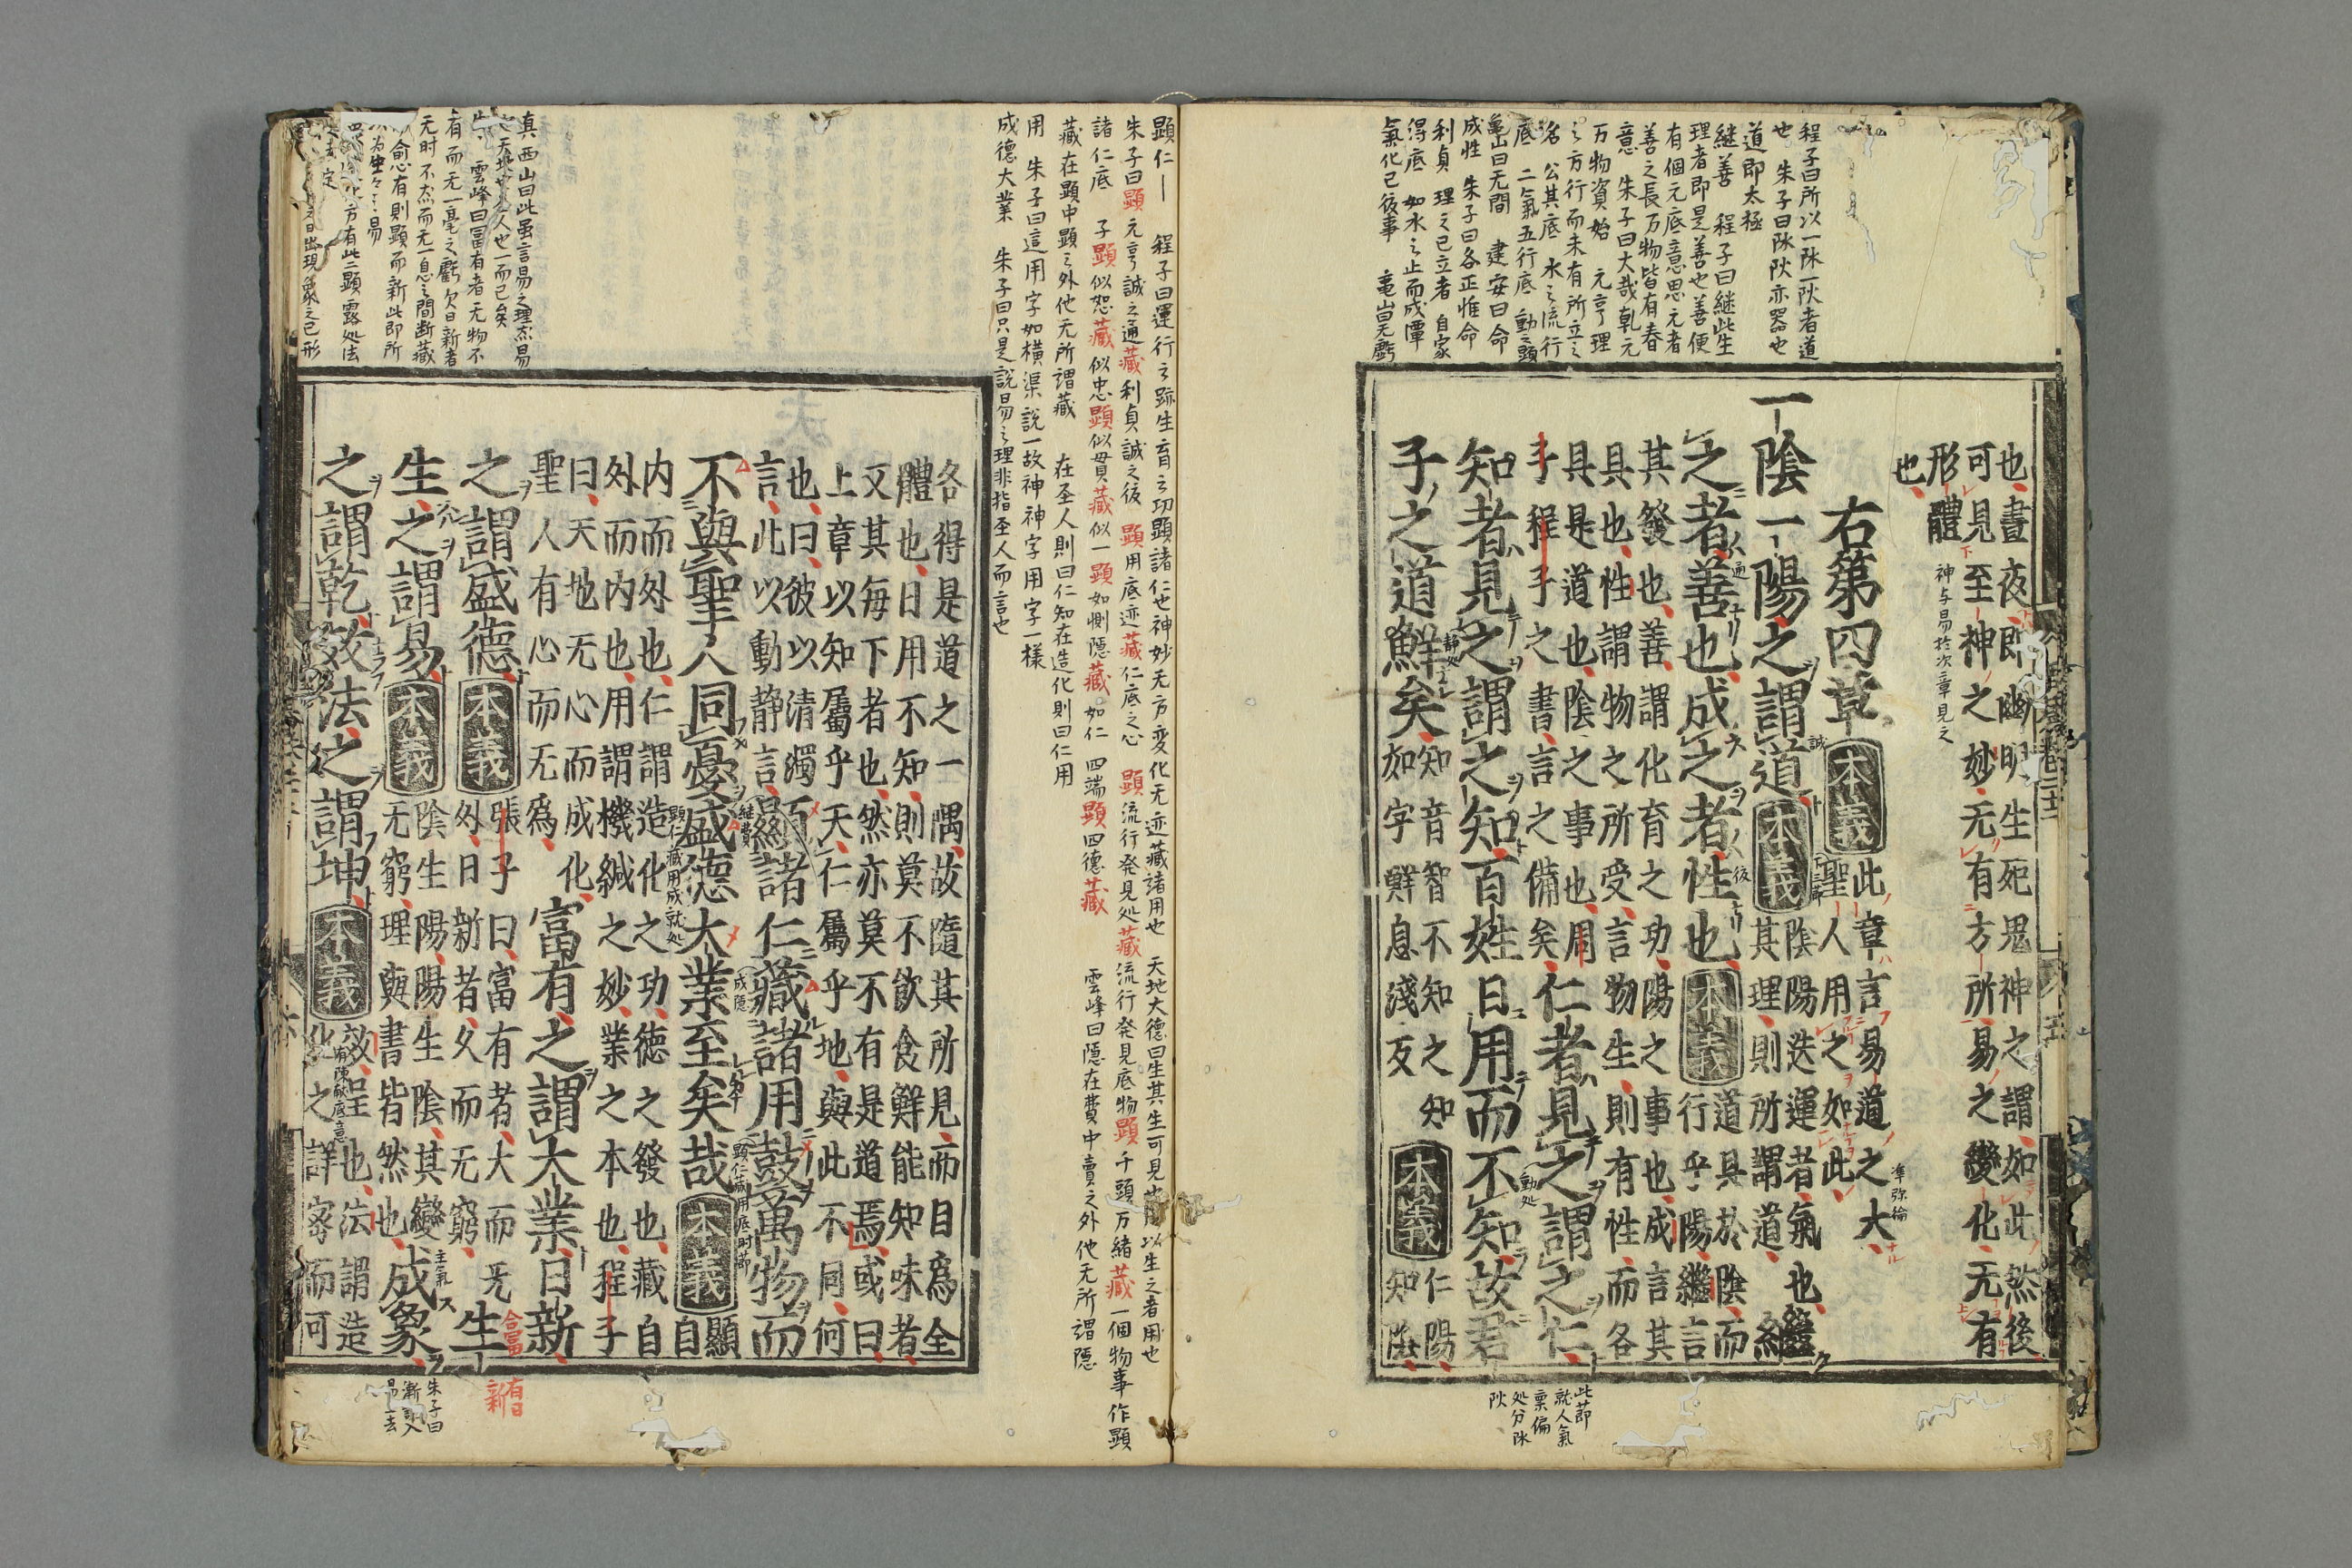 程子曰所以一阴一阳者道
也 朱子曰阴阳亦器也
道即太極
継善 程子曰継此生
理者即是善也善便
有個元底意思元者
善之長万物皆有春
意 朱子曰大哉乾元
万物資始 元亨理
之方行而未有所立之
名 公其底 水之流行
底 二氣五行底 動之頭
亀山曰无間 建安曰命
成性 朱子曰各正惟命
利貞 理之已立者 自家
得底 如水之止而成潭
氣化已後事 亀山曰无虧
也晝夜即幽明生死鬼神之謂如此然後
可見至神之妙无有方所易之變化无有
形體 神与易於次章見之
也
右第四章 本義 此章言易道之大
聖人用之如此
準弥綸
一陰一陽之謂道 本義 陰陽迭運者氣也
其理則所謂道
繼
之者善也成之者性也 本義 道具於陰而
行乎陽繼言
其發也善謂化育之功陽之事也成言其
具也性謂物之所受言物生則有性而各
具是道也陰之事也周
子程子之書言之備矣
仁者見之謂之仁
知者見之謂之知百姓日用而不知故君
子之道鮮矣 知音智不知之知
如字鮮息淺反
本義 仁陽
知陰
此節
就人氣
稟偏
処分阴
阳
顕仁 程子曰運行之跡生育之功顕諸仁也神妙无方変化无迹蔵諸用也 天地大德曰生其生可見也所以生之者用也
朱子曰顕元亨誠之通蔵利貞誠之後 顕用底迹蔵仁底心 顕流行発見処蔵流行発見底物顕千頭万緒蔵一個物事作顕
諸仁底 子顕似恕蔵似忠顕似貫蔵似一顕如惻隠蔵如仁 四端顕四德蔵 雲峰曰隠在費中費之外他无所謂隠
蔵在顕中顕之外他无所謂蔵 在圣人則曰仁知在造化則曰仁用
用 朱子曰這用字如横渠説一故神神字用字一様
成德大業 朱子曰只是説易之理非指圣人而言也
各得是道之一隅故隨其所見而目爲全
體也日用不知則莫不飲食鮮能知味者
又其毎下者也然亦莫不有是道焉或曰
上章以知屬乎天仁屬乎地與此不同何
也曰彼以清濁
言此以動靜言
顯諸仁藏諸用鼓萬物而
不與聖人同憂盛德大業至矣哉 本義 顯
自
内而外也仁謂造化之功德之發也藏自
外而内也用謂機緘之妙業之本也程子
曰天地无心而成化
聖人有心而无爲
富有之謂大業日新
之謂盛德 本義 張子曰富有者大而无
外日新者久而无窮
生
生之謂易 本義 陰生陽陽生陰其變
无窮理與書皆然也
成象
之謂乾效法之謂坤 本義 效呈也法謂造
化之詳密而可
真西山曰此虽言易之理然易
也天地也圣人也一而已矣
雲峰曰冨有者无物不
有而无一毫之虧欠日新者
无时不然而无一息之間断蔵
有則顕而新此即所
為生々之易
方有此二顕露処法
出現象之已形
朱子曰
漸入
易去
合冨
有日
新